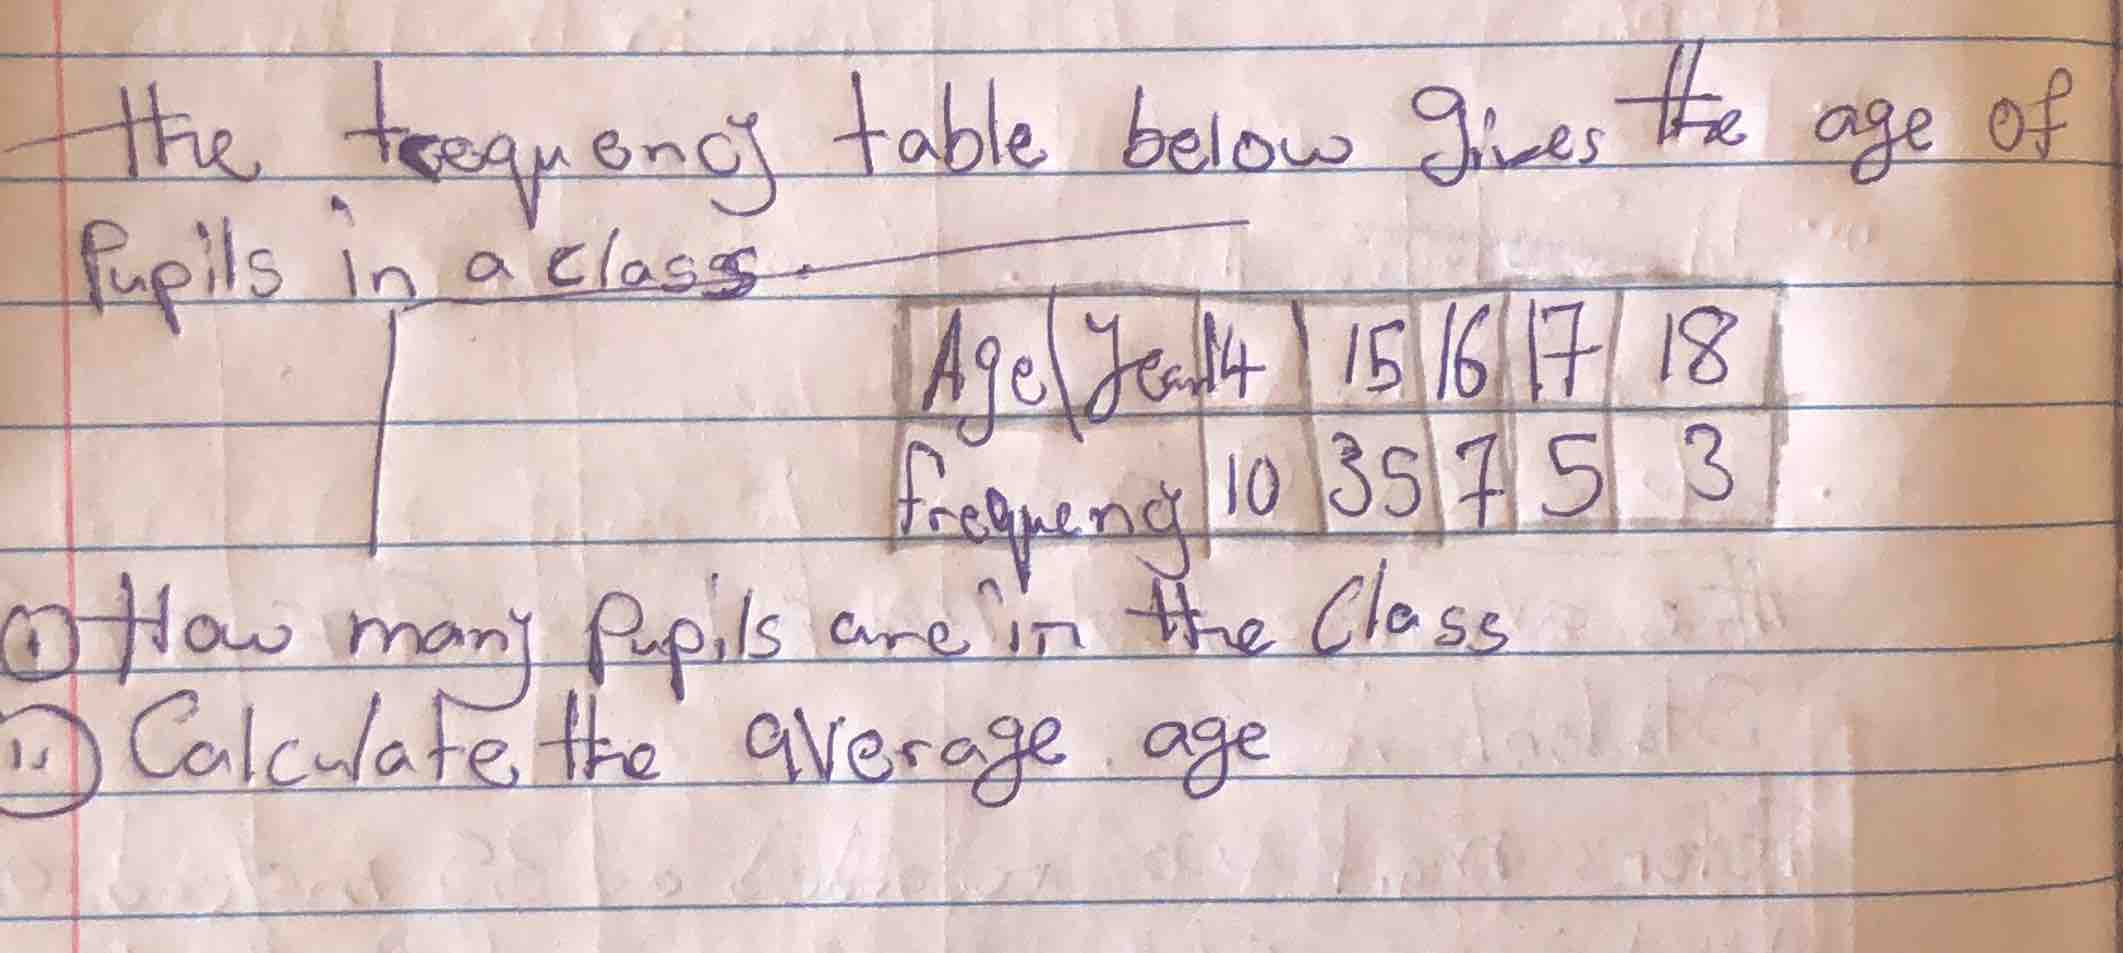 The frequency table below gives the age of
Pupils in a class.
Age | Year 14 15 16 17 18
frequency 10 35 7 5 3
i How many Pupils are in the Class
ii Calculate the average age